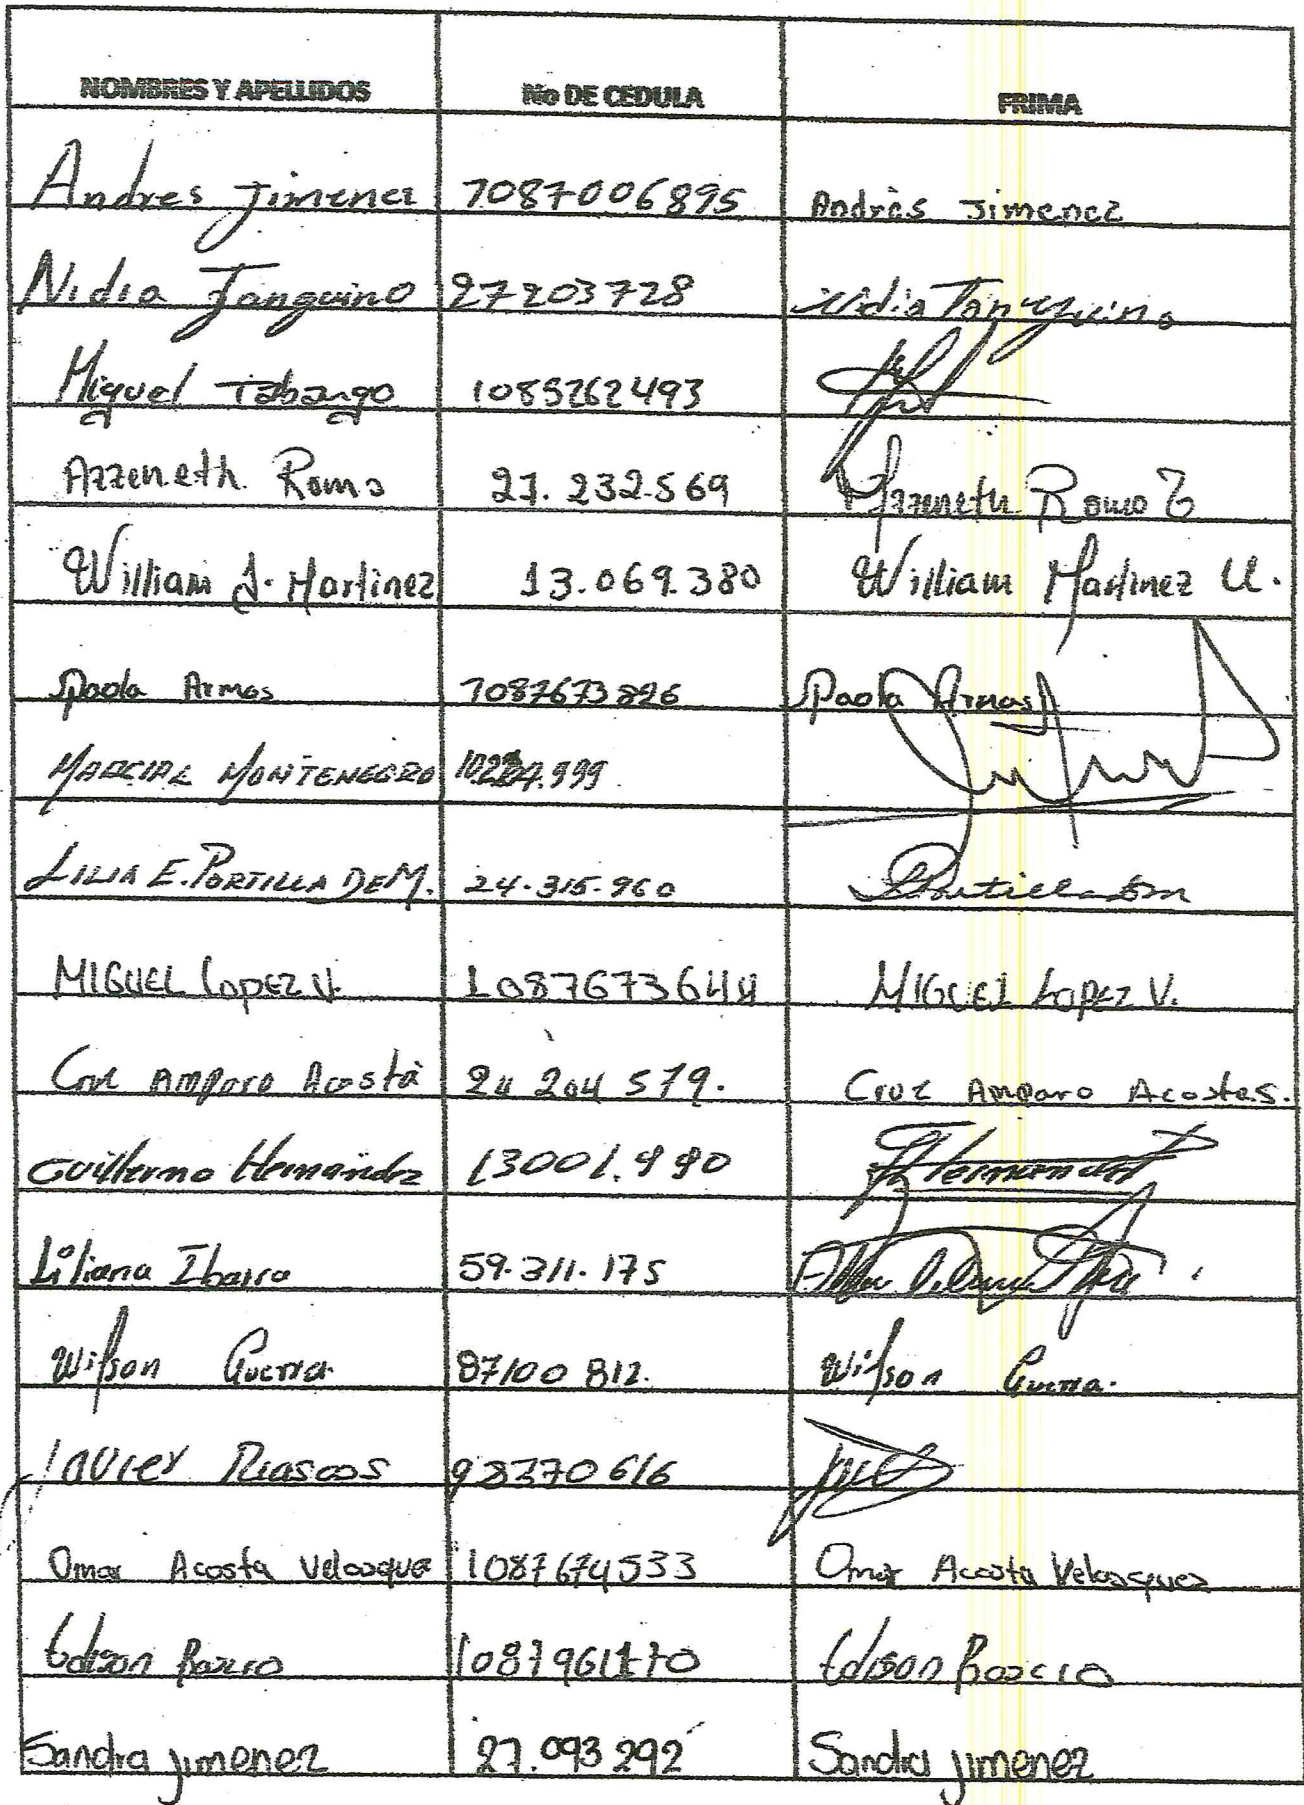 NOMBRES Y APELLIDOS No DE CEDULA FRIMA
Andres Jimenez 1087006895 Andrés Jimenez
Nidia Tanguino 27203728 Nidia Tanguino
Miguel Tabango 1085262493
Azzeneth Romo 27.232.569 Azzeneth Romo
William J. Martinez 13.069.380 William Martinez U.
Paola Armas 1087673826 Paola Armas
MARCIAL MONTENEGRO
LILIA E. PORTILLA DE M. 24.315.960
MIGUEL LOPEZ V. 1087673644 MIGUEL LOPEZ V.
Cruz Amparo Acosta 24 204 579. Cruz Amparo Acosta S.
Guillermo Hernandez 13001.990 Hernandez
Liliana Ibarra 59.311.175
Wilson Guerra 87100 812. Wilson Guerra.
Javier Riascos 98370616
Omar Acosta Velasque 1087674533 Omar Acosta Velasquez
Edison Rosero Edison
Sandra Jimenez 27.093 292 Sandra Jimenez